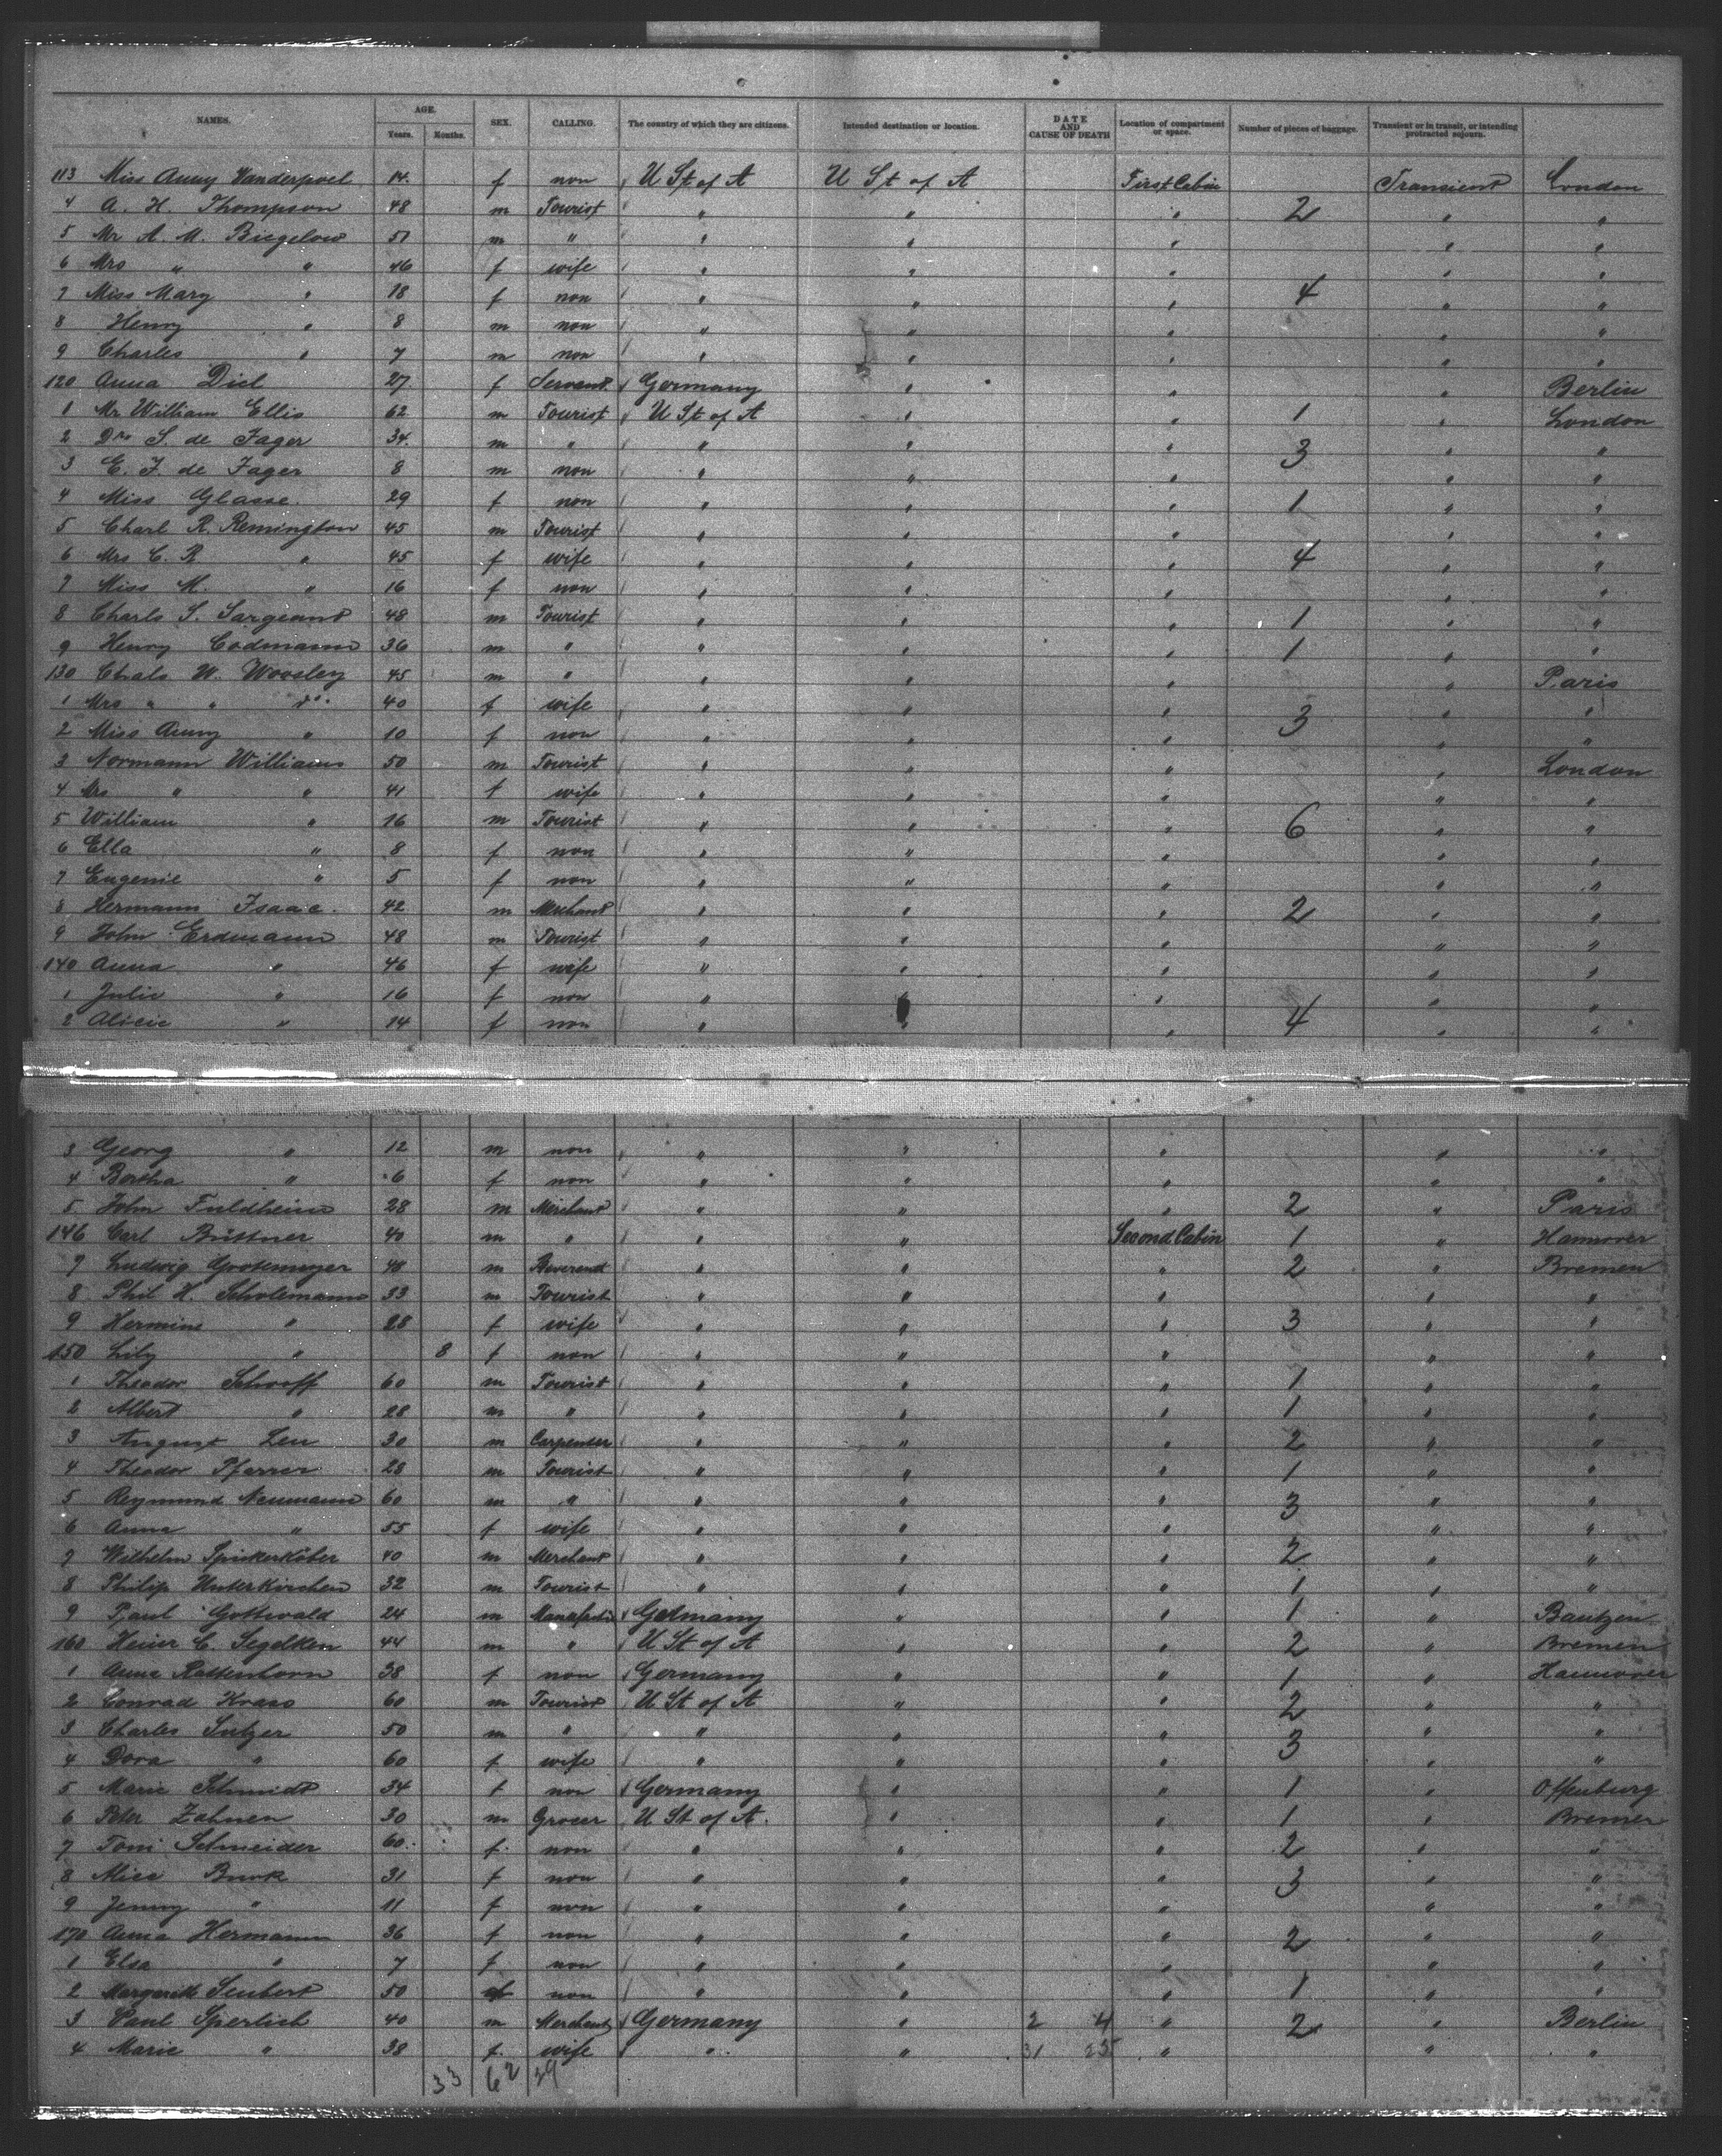 NAMES. AGE. Years. Months. SEX. CALLING. The country of which they are citizens. Intended destination or location. DATE AND CAUSE OF DEATH Location of compartment or space. Number of pieces of baggage. Transient or in transit, or intending protracted sojourn.
113 Miss Anny Vanderpoel 14. f non U St of A U St of A First Cabin Transient London
4 A. H. Thompson 48 m Tourist " " " 2 " "
5 Mr A. M. Biegelow 51 m " " " " " "
6 Mrs " " 46 f wife " " " " "
7 Miss Mary " 18 f non " " " 4 " "
8 Henry " 8 m non " " " " "
9 Charles " 7 m non " " " " "
120 Anna Diel 27 f Servant Germany " " " Berlin
1 Mr William Ellis 62 m Tourist U St of A " " 1 " London
2 Drs S. de Jager 34. m " " " " 3 " "
3 E. J. de Jager 8 m non " " " " "
4 Miss Glasse. 29 f non " " " 1 " "
5 Charl R. Remington 45 m Tourist " " " " "
6 Mrs C. R " 45 f wife " " " 4 " "
7 Miss M. " 16 f non " " " " "
8 Charls S. Sargeant 48 m Tourist " " " 1 " "
9 Henry Codmann 36 m " " " " 1 " "
130 Chals W. Woosley 45 m " " " " " Paris
1 Mrs " " do. 40 f wife " " " 3 " "
2 Miss Anny " 10 f non " " " " "
3 Normann Williams 50 m Tourist " " " " London
4 Mrs " " 41 f wife " " " " "
5 William " 16 m Tourist " " " 6 " "
6 Ella " 8 f non " " " " "
7 Eugenie " 5 f non " " " " "
8 Hermann Isaac. 42 m Merchant " " " 2 " "
9 John Erdmann 48 m Tourist " " " " "
140 Anna " 46 f wife " " " " "
1 Julie " 16 f non " " " " "
2 Alicie " 14 f non " " " 4 " "
3 Georg " 12 m non " " " " "
4 Bertha " 6 f non " " " " "
5 John Fuldheim 28 m Merchant " " " 2 " Paris
146 Carl Büttner 40 m " " " Second Cabin 1 " Hannover
7 Ludwig Grotemeyer 48 m Reverend " " " 2 " Bremen
8 Phil H. Scholemann 33 m Tourist " " " " "
9 Hermine " 28 f wife " " " 3 " "
150 Lily " 8 f non " " " " "
1 Theodor Schroff 60 m Tourist " " " 1 " "
2 Albert " 28 m " " " " 1 " "
3 August Leu 30 m Carpenter " " " 2 " "
4 Theodor Pfarrer 28 m Tourist " " " 1 " "
5 Reymund Neumann 60 m " " " " 3 " "
6 Anna " 55 f wife " " " " "
7 Wilhelm Spickerköter 40 m Merchant " " " 2 " "
8 Philip Unterkirchen 32 m Tourist " " " 1 " "
9 Paul Gottwald 24 m Germany " " 1 " Bautzen
160 Heinr C. Segelken 44 m " U St of A " " 2 " Bremen
1 Anna Rattenhorn 38 f non Germany " " 1 " Hannover
2 Conrad Krass 60 m Tourist U St of A " " 2 " "
3 Charles Sulzer 50 m " " " " 3 " "
4 Dora " 60 f wife " " " " "
5 Marie Schmidt 34 f non Germany " " 1 " Offenburg
6 Peter Zahnen 30 m Grocer U St of A. " " 1 " Bremen
7 Toni Schneider 60. f. non " " " 2 " "
8 Alice Burk 31 f non " " " 3 " "
9 Jenny " 11 f non " " " " "
170 Anna Hermann 36 f non " " " 2 " "
1 Elsa " 7 f non " " " " "
2 Margareth Seubert 50 f non " " " 1 " "
3 Paul Sperlich 40 m Merchant Germany " 2 4 " 2 " Berlin
4 Marie " 38 f. wife " " 31 25 " " "
33 62 39